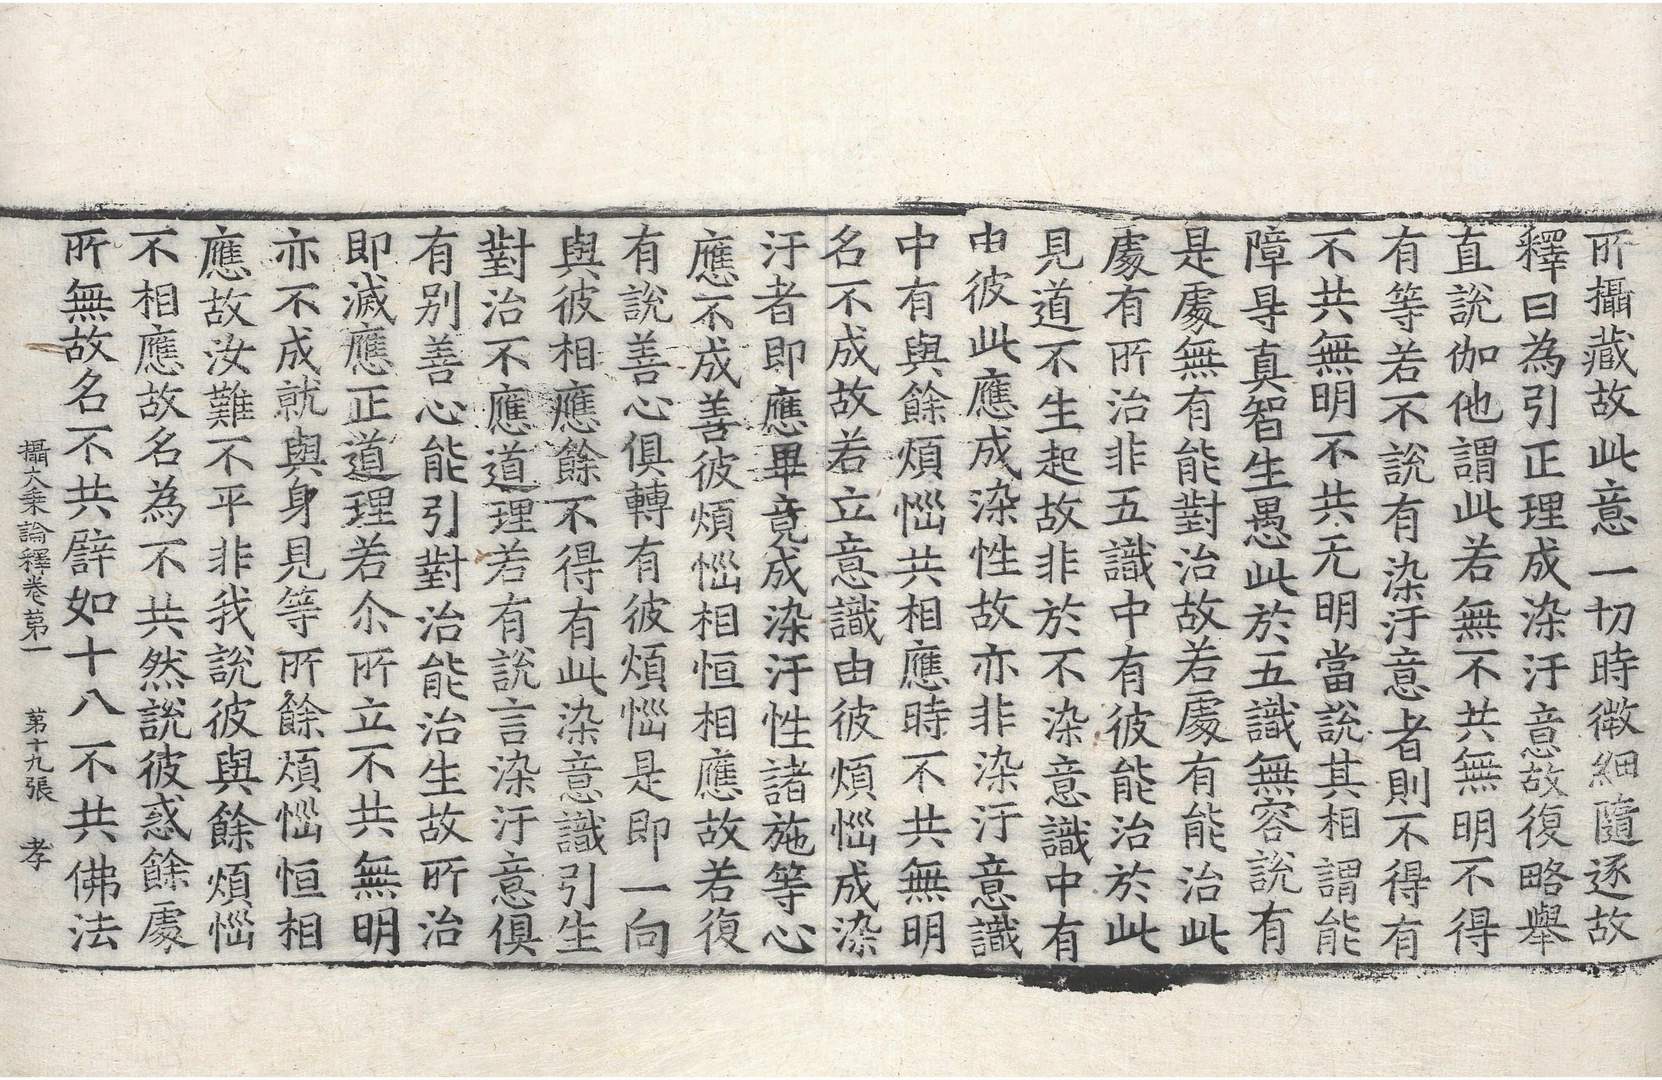 所攝藏故此意一切時微細隨逐故
釋曰為引正理成染汙意故復略舉
直說伽他謂此若無不共無明不得
有等若不說有染汙意者則不得有
不共無明不共无明當說其相謂能
障㝵真智生愚此於五識無容說有
是處無有能對治故若處有能治此
處有所治非五識中有彼能治於此
見道不生起故非於不染意識中有
由彼此應成染性故亦非染汙意識
中有與餘煩惱共相應時不共無明
名不成故若立意識由彼煩惱成染
汙者即應畢竟成染汙性諸施等心
應不成善彼煩惱相恒相應故若復
有說善心俱轉有彼煩惱是即一向
與彼相應餘不得有此染意識引生
對治不應道理若有說言染汙意俱
有別善心能引對治能治生故所治
即滅應正道理若尒所立不共無明
亦不成就與身見等所餘煩惱恒相
應故汝難不平非我說彼與餘煩惱
不相應故名為不共然說彼惑餘處
所無故名不共譬如十八不共佛法
攝大乘論釋卷第一 第十九張 孝